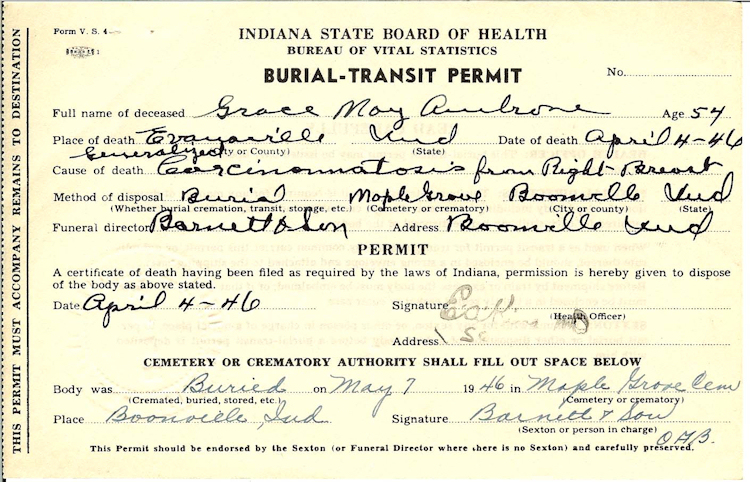 Form V. S. 4
INDIANA STATE BOARD OF HEALTH
BUREAU OF VITAL STATISTICS
BURIAL-TRANSIT PERMIT
No.
Full name of deceased Grace May Ambrose Age 54
Place of death Evansville Ind Date of death April 4-46
(City or County) (State)
Generalized
Cause of death Carcinomatosis from Right Breast
Method of disposal Burial Maple Grove Boonville Ind
(Whether burial cremation, transit, storage, etc.) (Cemetery or crematory) (City or county) (State)
Funeral director Barnett & Son Address Boonville Ind
PERMIT
A certificate of death having been filed as required by the laws of Indiana, permission is hereby given to dispose
of the body as above stated.
Date April 4-46 Signature
(Health Officer)
Address
CEMETERY OR CREMATORY AUTHORITY SHALL FILL OUT SPACE BELOW
Body was Buried on May 7 1946 in Maple Grove Cem
(Cremated, buried, stored, etc.) (Cemetery or crematory)
Place Boonville, Ind Signature Barnett & Son
(Sexton or person in charge)
O.H.B.
This Permit should be endorsed by the Sexton (or Funeral Director where there is no Sexton) and carefully preserved.
THIS PERMIT MUST ACCOMPANY REMAINS TO DESTINATION